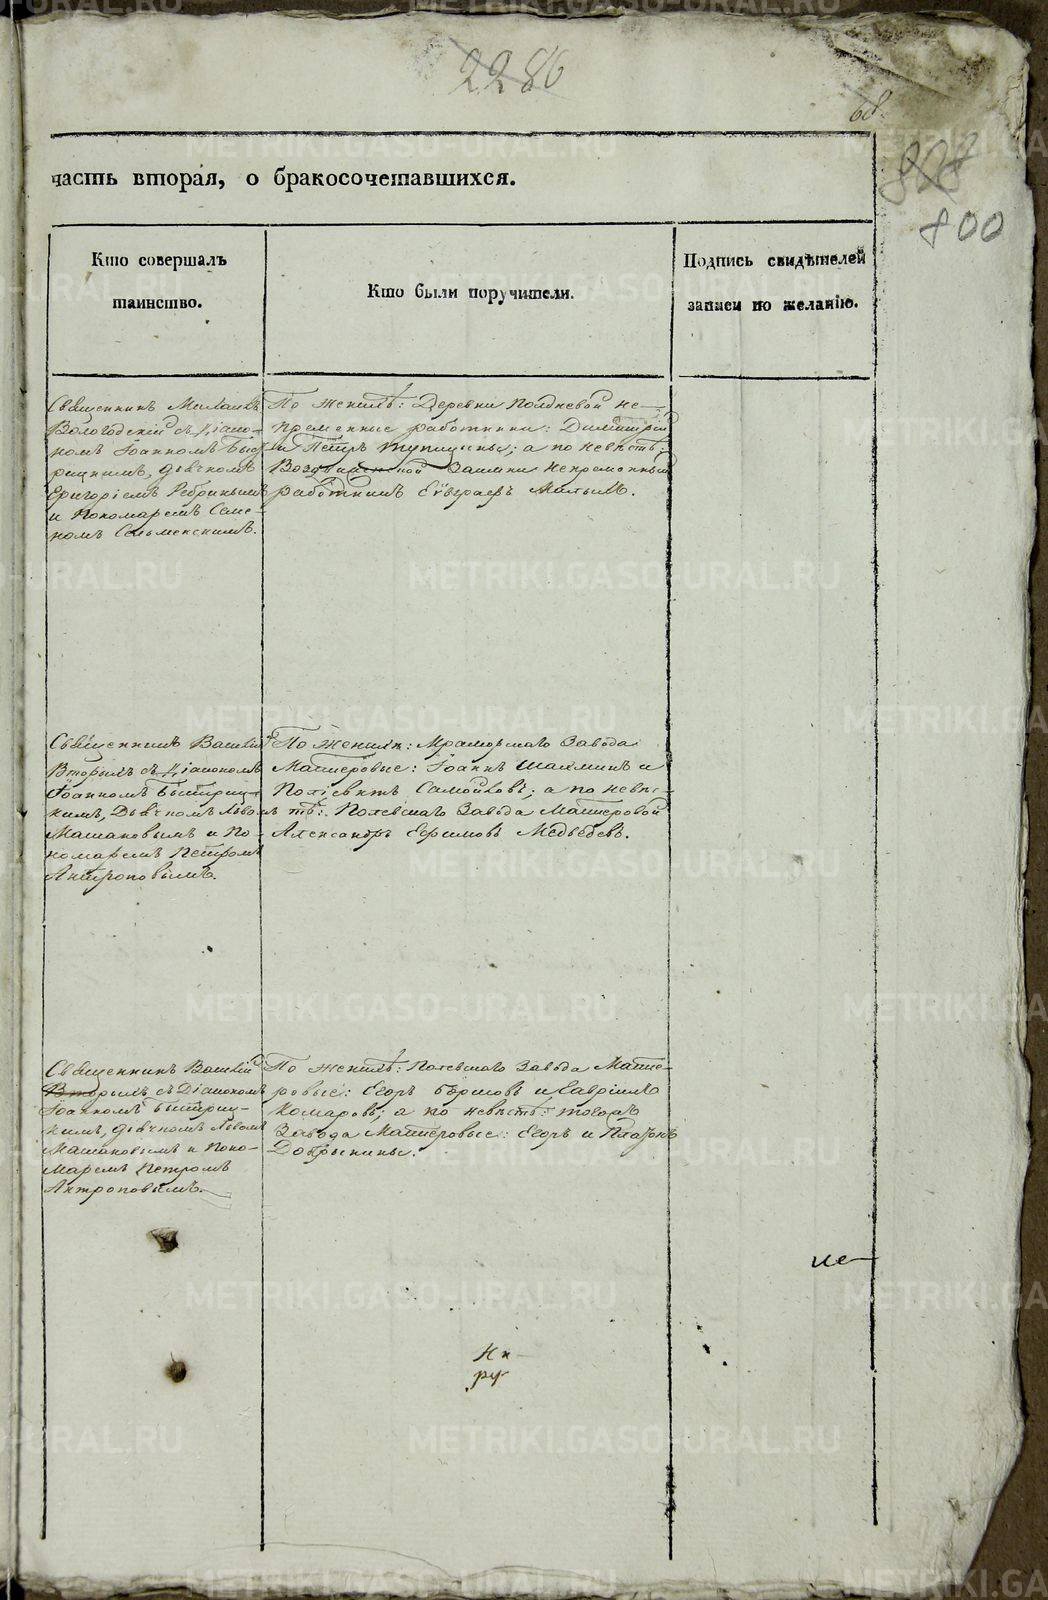 2286
68.
808
800
часть вторая, о бракосочетавшихся.
Кто совершалъ
таинство.
Кто были поручители.
Подпись свидѣтелей
записи по желанію.
Священникъ
Вологодскій съ Діако-
номъ Іоанномъ Быст
рицкимъ, дьячкомъ
Григоріемъ Ребринымъ
и Пономаремъ Семе-
номъ Сельменскимъ.
По женихѣ: Деревни Полдневой не-
премѣнные работники: Димитрій
и Петръ Тупицины; а по невѣстѣ:
Воздвиженской непремѣнный
работникъ Евграфъ
Священникъ Василій
Вторыхъ съ Діакономъ
Іоанномъ Быстриц-
кимъ, Дьячкомъ Львомъ
Машановымъ и По-
номаремъ Петромъ
Антроповымъ.
По женихѣ: Мраморскаго Завода
Мастеровые: Іоаннъ Шахминъ и
Поліевктъ Самойловъ; а по невѣс-
тѣ: Полевскаго Завода Мастеровой
Александръ Ефимовъ Медвѣдевъ.
Священникъ Василій
Вторыхъ съ Діакономъ
Іоанномъ Быстриц-
кимъ, дьячкомъ Львомъ
Машановымъ и Поно-
маремъ Петромъ
Антроповымъ.
По женихѣ: Полевскаго Завода Масте-
ровые: Егоръ и Гавріилъ
Комаровъ; а по невѣстѣ: тогожъ
Завода Мастеровые: Егоръ и Платонъ
Добрынины.
не
Ни
ру
METRIKI.GASO-URAL.RU